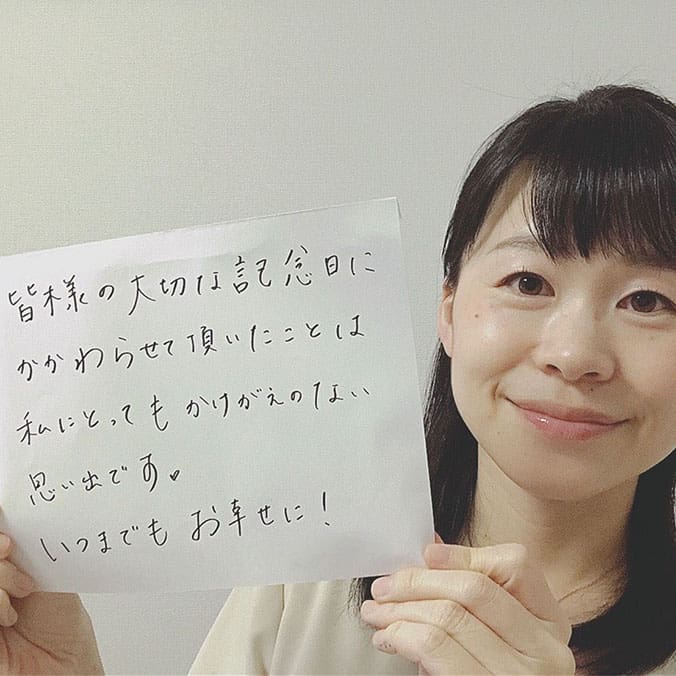 皆様の大切な記念日に
かかわらせて頂いたことは
私にとってもかけがえのない
思い出です。
いつまでもお幸せに！